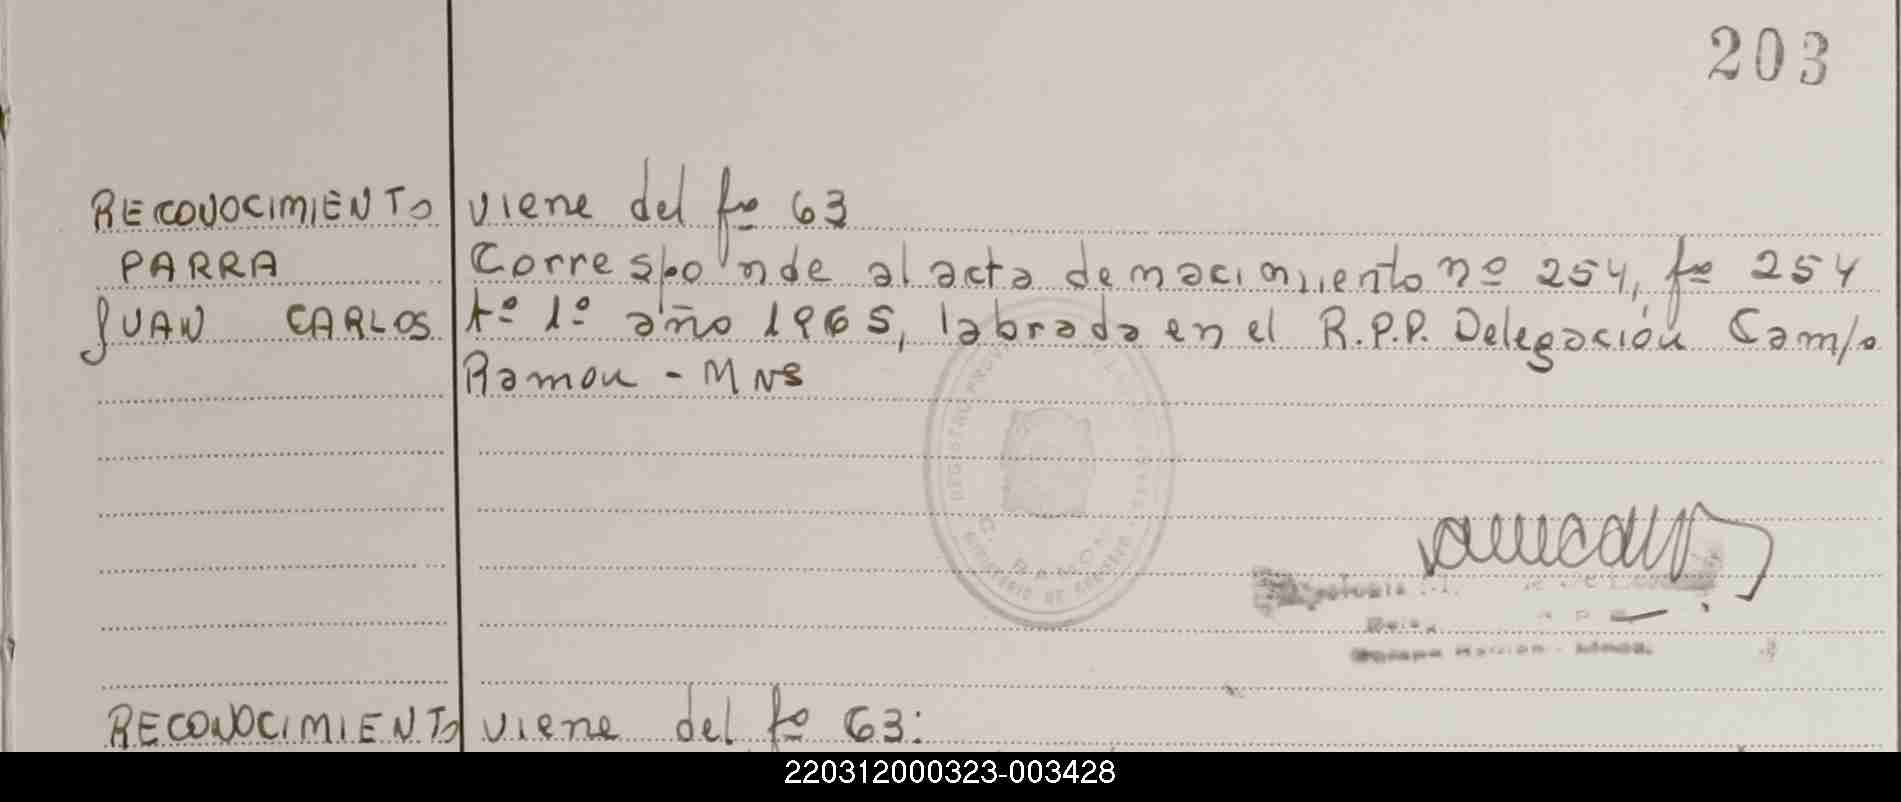 203
RECONOCIMIENTO viene del fº 63
PARRA Corresponde al acta de nacimiento nº 254, fº 254
JUAN CARLOS tº 1º año 1965, labrada en el R.P.P. Delegación Cam/o
Ramon - MNS
RECONOCIMIENTO viene del fº 63:
220312000323-003428